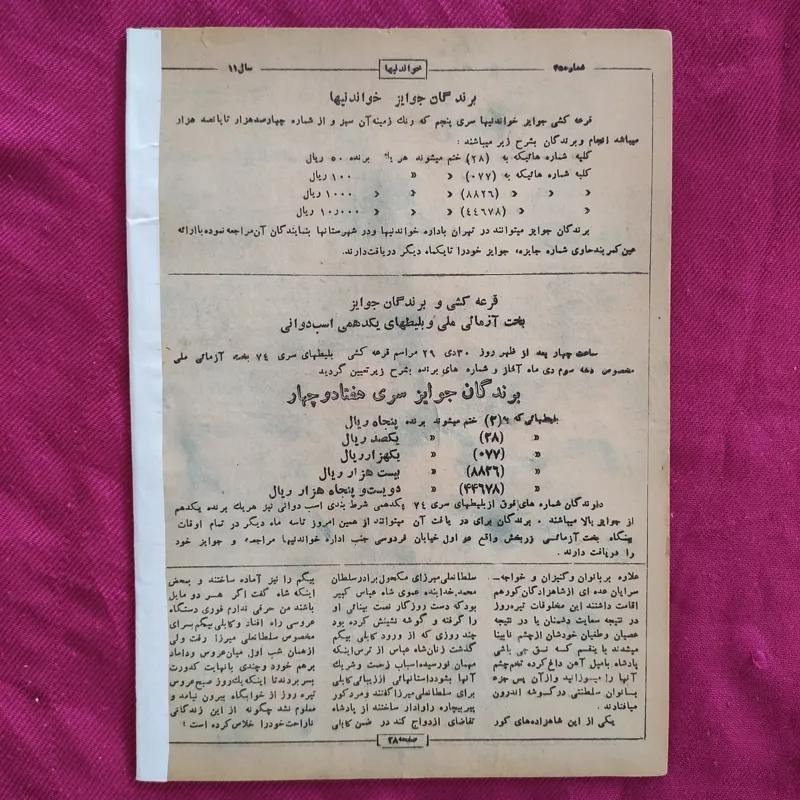 شماره ۴۵
خواندنیها
سال ۱۱
برندگان جوایز خواندنیها
قرعه کشی جوایز خواندنیها سری پنجم که رنك زمینه‌آن سبز و از شماره چهارصدهزار تاپانصد هزار
میباشد انجام وبرندگان بشرح زیر میباشند :
کلیه شماره هائیکه به (۲۸) ختم میشوند هر یك برنده ۵۰ ریال
کلیه شماره هائیکه به (۰۷۷) » » ۱۰۰ ریال
» » » (۸۸۲۶) » » » ۱۰۰۰ ریال
» » (۴۴۶۷۸) » » » ۱۰٫۰۰۰ ریال
برندگان جوایز میتوانند در تهران باداره خواندنیها ودر شهرستانها بنمایندگان آن‌مراجعه نموده‌باارائه
عین‌کمربندحاوی شماره جایزه، جوایز خودرا تایکماه دیگر دریافت‌دارند.
قرعه کشی و برندگان جوایز
بخت آزمائی ملی وبلیطهای یکدهمی اسب‌دوانی
ساعت چهار بعد از ظهر روز ۳۰دی ۲۹ مراسم قرعه کشی بلیطهای سری ۷۴ بخت آزمائی ملی
مخصوص دهه سوم دی ماه آغاز و شماره های برنده بشرح زیرتعیین گردید
برندگان جوایز سری هفتادوچهار
بلیطهائی که به (۲) ختم میشوند برنده پنجاه ریال
» (۲۸) » یکصد ریال
» (۰۷۷) » یکهزارریال
» (۸۸۲۶) » بیست هزار ریال
» (۴۴۶۷۸) » دویست‌و پنجاه هزار ریال
دارندگان شماره های‌فوق ازبلیطهای سری ۷۴ یکدهمی شرط بندی اسب دوانی نیز هریك برنده یکدهم
از جوایز بالا میباشند . برندگان برای در یافت آن میتوانند از همین امروز تاسه ماه دیگر در تمام اوقات
بنگاه بخت‌آزمائی زربخش واقع در اول خیابان فردوسی جنب اداره خواندنیها مراجعه و جوایز خود
را دریافت دارند .
علاوه بربانوان وکنیزان و خواجه‌ـ
سرایان عده ای ازشاهزادگان‌کورهم
اقامت داشتند این مخلوقات تیره‌روز
در نتیجه سعایت دشمنان یا در نتیجه
عصیان وطغیان خودشان ازچشم نابینا
میشدند باینقسم که نسق چی باشی
پادشاه بامیل آهن داغ‌کرده تخم‌چشم
آنها را میسوزانید وازآن پس جزء
بانوان سلطنتی درگوشه اندرون
میافتادند .
یکی از این شاهزاده‌های کور
سلطانعلی میرزای مکحول برادرسلطان
محمد خدابنده عموی شاه عباس کبیر
بودکه دست روزگار نعمت بینائی او
را گرفته و گوشه نشینش کرده بود
چند روزی که از ورود کابلی بیگم
گذشت زنان‌شاه عباس از ترس‌اینکه
مهمان نورسیده‌اسباب زحمت وشریك
آنها بشودداستانهائی اززیبائی‌کابلی
برای سلطانعلی‌میرزاگفتند ومردکور
پیربیچاره راوادار ساختند از پادشاه
تقاضای ازدواج کند در ضمن کابلی
بیگم را نیز آماده ساختند و بمحض
اینکه شاه گفت اگر هر دو مایل
باشند من حرفی ندارم فوری دستگاه
عروسی راه افتاد وکابلی‌بیگم‌بسرای
مخصوص سلطانعلی میرزا رفت ولی
ازهمان شب اول میان‌عروس وداماد
برهم خورد وچندی بانهایت کدورت
بسر بردندتا اینکه‌یك‌روز صبح‌عروس
تیره روز از خوابگاه بیرون نیامد و
معلوم نشد چگونه از این زندگانی
ناراحت‌خودرا خلاص‌کرده است !
صفحه ۲۸